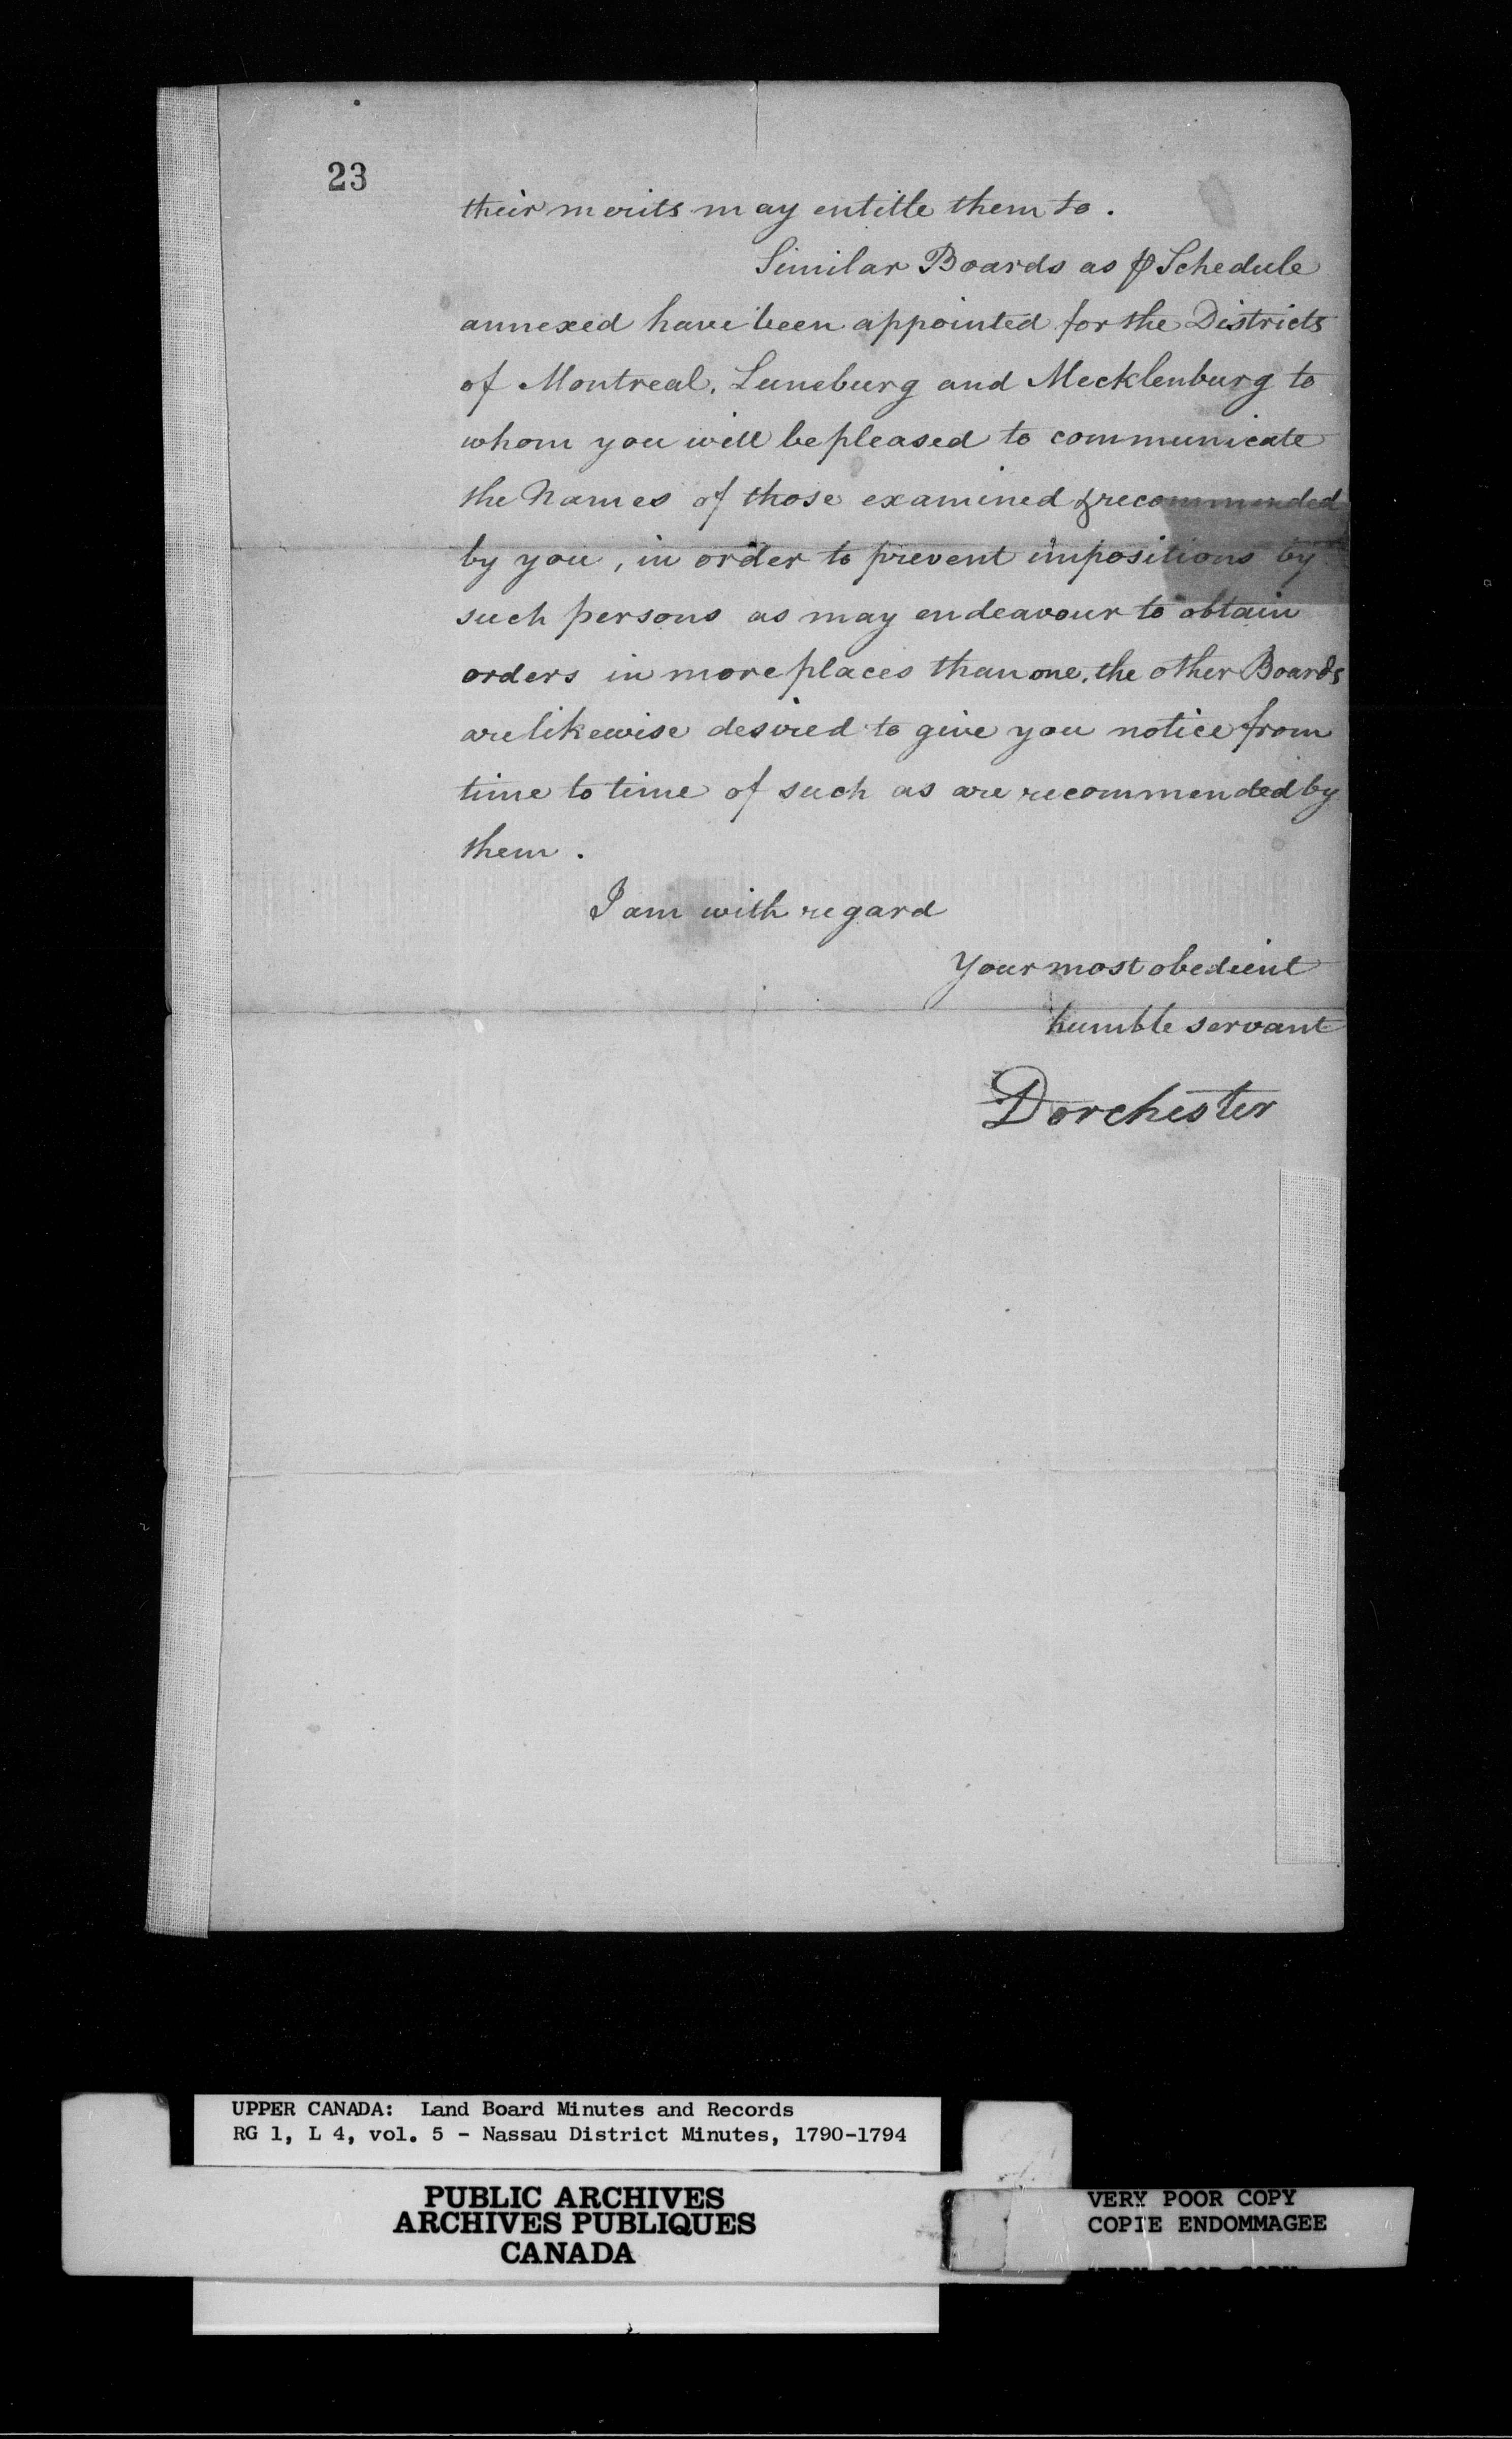 23
their merits may entitle them to.
Similar Boards as ⅌ Schedule
annexed have been appointed for the Districts
of Montreal, Luneburg and Mecklenburg to
whom you will be pleased to communicate
the Names of those examined & recommended
by you, in order to prevent impositions by
such persons as may endeavour to obtain
orders in more places than one, the other Boards
are likewise desired to give you notice from
time to time of such as are recommended by
them.
I am with regard
Your most obedient
humble servant
Dorchester
UPPER CANADA: Land Board Minutes and Records
RG 1, L 4, vol. 5 - Nassau District Minutes, 1790-1794
PUBLIC ARCHIVES
ARCHIVES PUBLIQUES
CANADA
VERY POOR COPY
COPIE ENDOMMAGEE
VERY POOR COPY